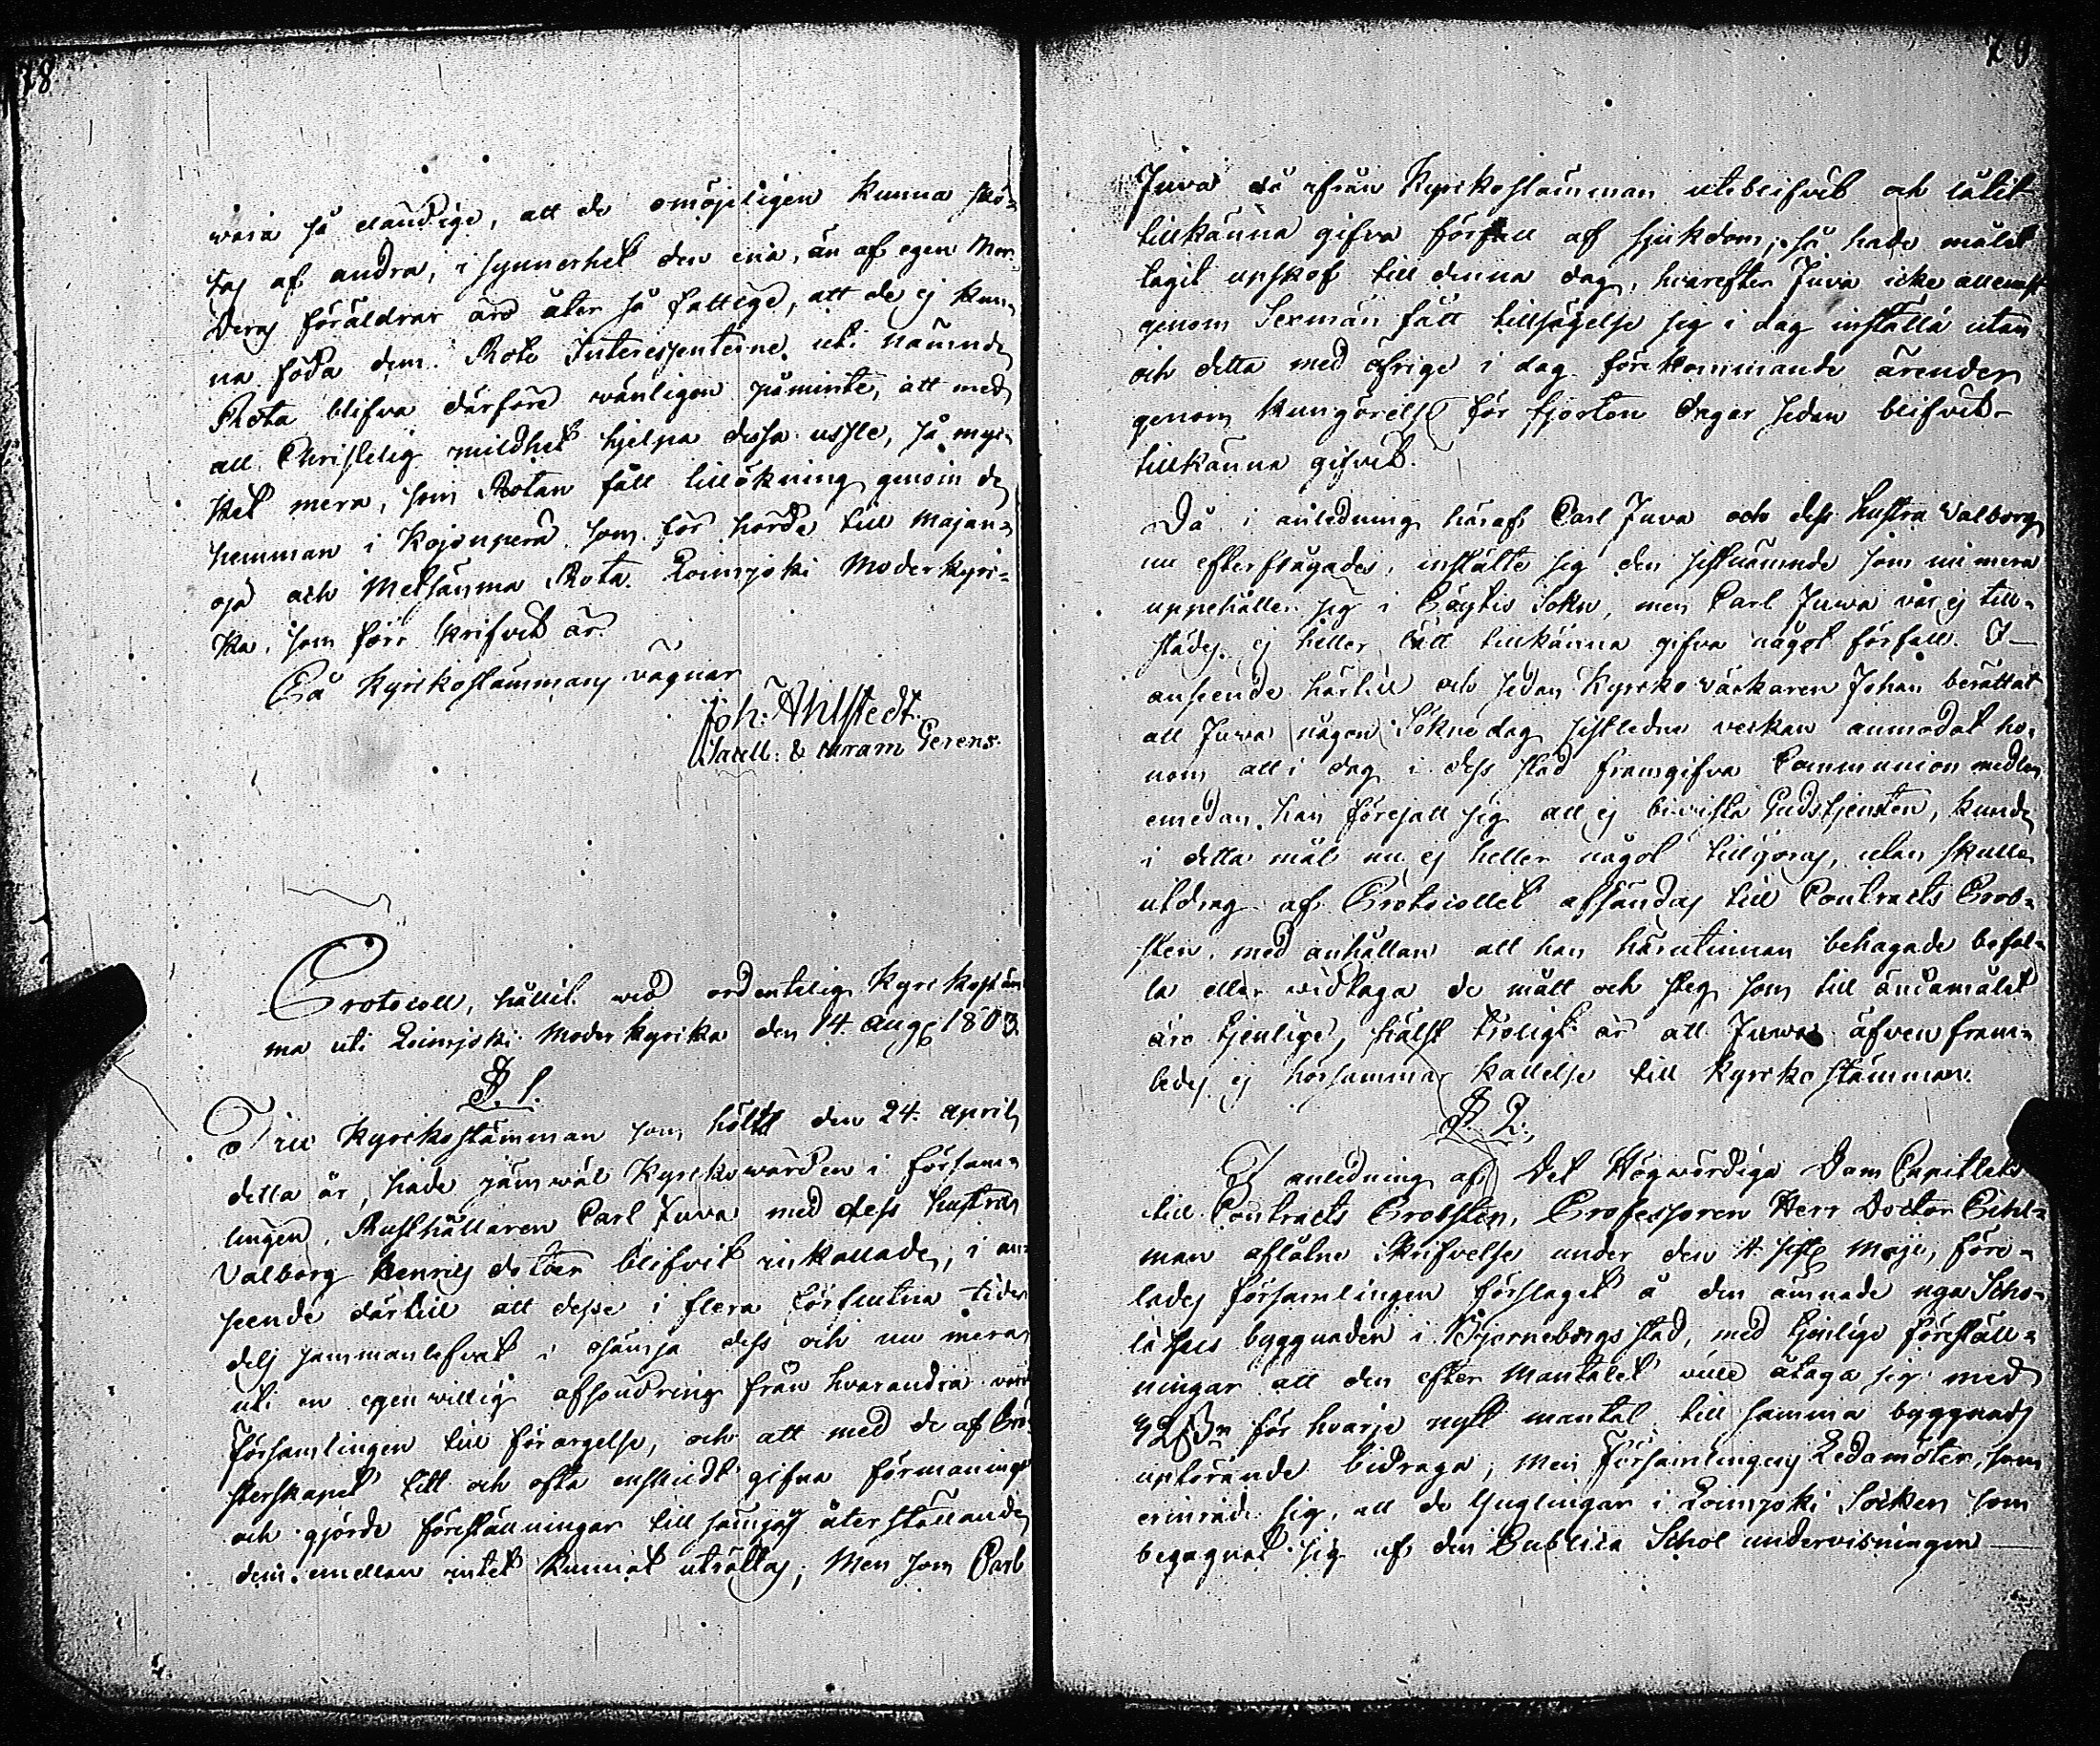 78
wara så eländige, att de omöjeligen kunna skö-
tas af andra, i synnerhet den ena, än af egen Mor.
Deras föräldrar äro åter så fattige, att de ej kun-
na föda dem. Rote Interessenterne uti nämnde
Rota blifva därföre wänligen påminte, att med
all Christelig mildhet hjelpa dessa ussle, så myc-
ket mera, som Rotan fått tillökning genom de
hemman i Kojonperä som för hörde till Majan-
oja och Metsänma Rota. Loimjoki Moderkyri-
ka, som förr skrifvit är.
På Kyrkostämmans vägnar
Joh: Ahlstedt.
Sacell: & curam Gerens.
Protocoll, hållit wid ordentelig Kyrkostäm
ma uti Loimjoki Moderkyrka den 14. Aug: 1803.
§. 1.
Till Kyrkostämman som hölts den 24. April
detta år, hade jämwäl Kyrkowärden i försam-
lingen, Rusthållaren Carl Juva med dess hustru
Valborg Henrics dotter blifvit inkallade, i an-
seende därtill att desse i flera förflutna tider
dels sammanlefvat i osämja dels och nu mera
uti en egenwillig afsöndring från hvarandra warit
församlingen till förargelse, och att med de af Prä-
sterskapet titt och ofta enskildt gifna förmaningar
och gjorde föreställningar till sämjas återställande
dem emellan intet kunnat uträttas; Men som Carl
79
Juva då ifrån Kyrkostämman uteblifvit och låtit
tillkänna gifva förfall af sjukdom; så hade målet
tagit upskof till denna dag, hvarefter Juva icke allenast
genom Sexman fått tillsägelse sig i dag inställa utan
och detta med öfrige i dag förekommande ärender
genom kungörelse för fjorton dagar sedan blifvit
tillkänna gifvit.
Då i anledning häraf Carl Juva och dess hustru Valborg
nu efterfrågades, instälte sig den sistnämnde som nu mera
uppehåller sig i Pöytis Sokn, men Carl Juwa var ej till-
städes ej heller lätt tillkänna gifva något förfall. I
anseende härtill och sedan Kyrko wäckaren Johan berättat
att Juva någon Söknedag sistledne veckan anmodat ho-
nom att i dag i dess stad framgifva Communion medlen
emedan han föresatt sig att ej bivista Gudstjensten, kunde
i detta mål nu ej heller något tillgöras, utan skulle
utdrag af Protocollet afsändas till Contracts Prob-
sten, med anhållan att han härutinnan behagade befal-
la eller widtaga de mått och steg som till ändamålet
äro tjenlige, hälst troligt är att Juwa äfven fram-
ledes ej hörsammar kallelse till Kyrkostämman.
§. 2.
I anledning af Det Högwördiga Dom Capitlets
till Contracts Probsten, Professoren Herr Doctor Pihl-
man aflåtne Skrifvelse under den 4 sistl. Maji, före-
lades församlingen förslaget å den ämnade nya Scho-
læ hus byggnaden i Björneborgs stad, med tjenlige föreställ-
ningar att den efter Mantalet wille åtaga sig med
för hvarje nytt mantal till samma byggnads
upförande bidraga; Men Församlingens Ledamöter, som
erinrade sig, att de Ynglingar i Loimjoki Socken som
begagnat sig af den Publica Schol undervisningen